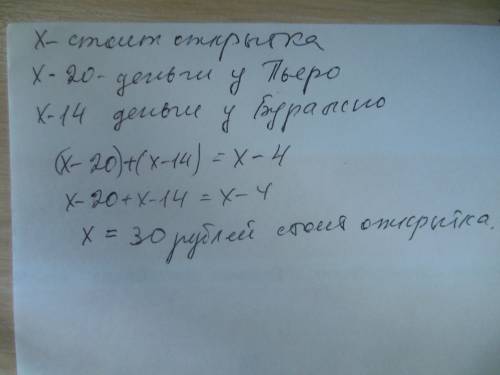 х- стоит открытка
х-20- деньги у Пьеро
х-14 деньги у Буратино
(х-20)+(х-14) = х-4
х-20+х-14 = х-4
х = 30 рублей стоит открытка.